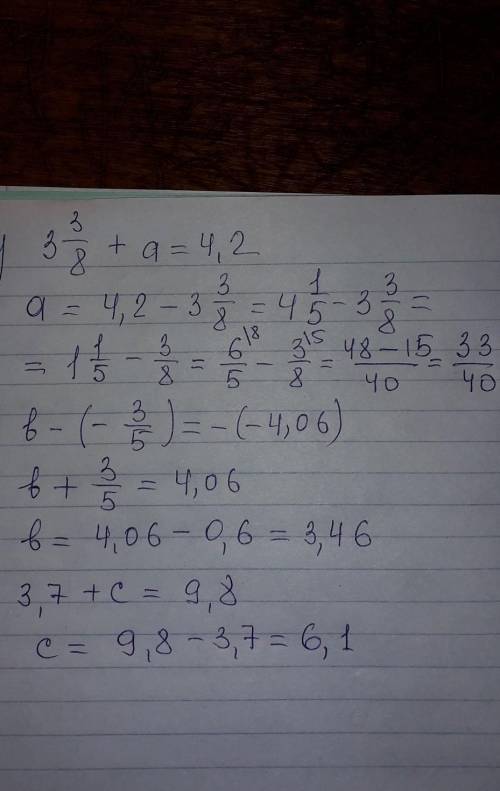 ) 3 3/8 + a = 4,2
a = 4,2 - 3 3/8 = 4 1/5 - 3 3/8 =
= 1 1/5 - 3/8 = 6\8/5 - 3\5/8 = 48-15/40 = 33/40
b - (- 3/5) = -(-4,06)
b + 3/5 = 4,06
b = 4,06 - 0,6 = 3,46
3,7 + c = 9,8
c = 9,8 - 3,7 = 6,1